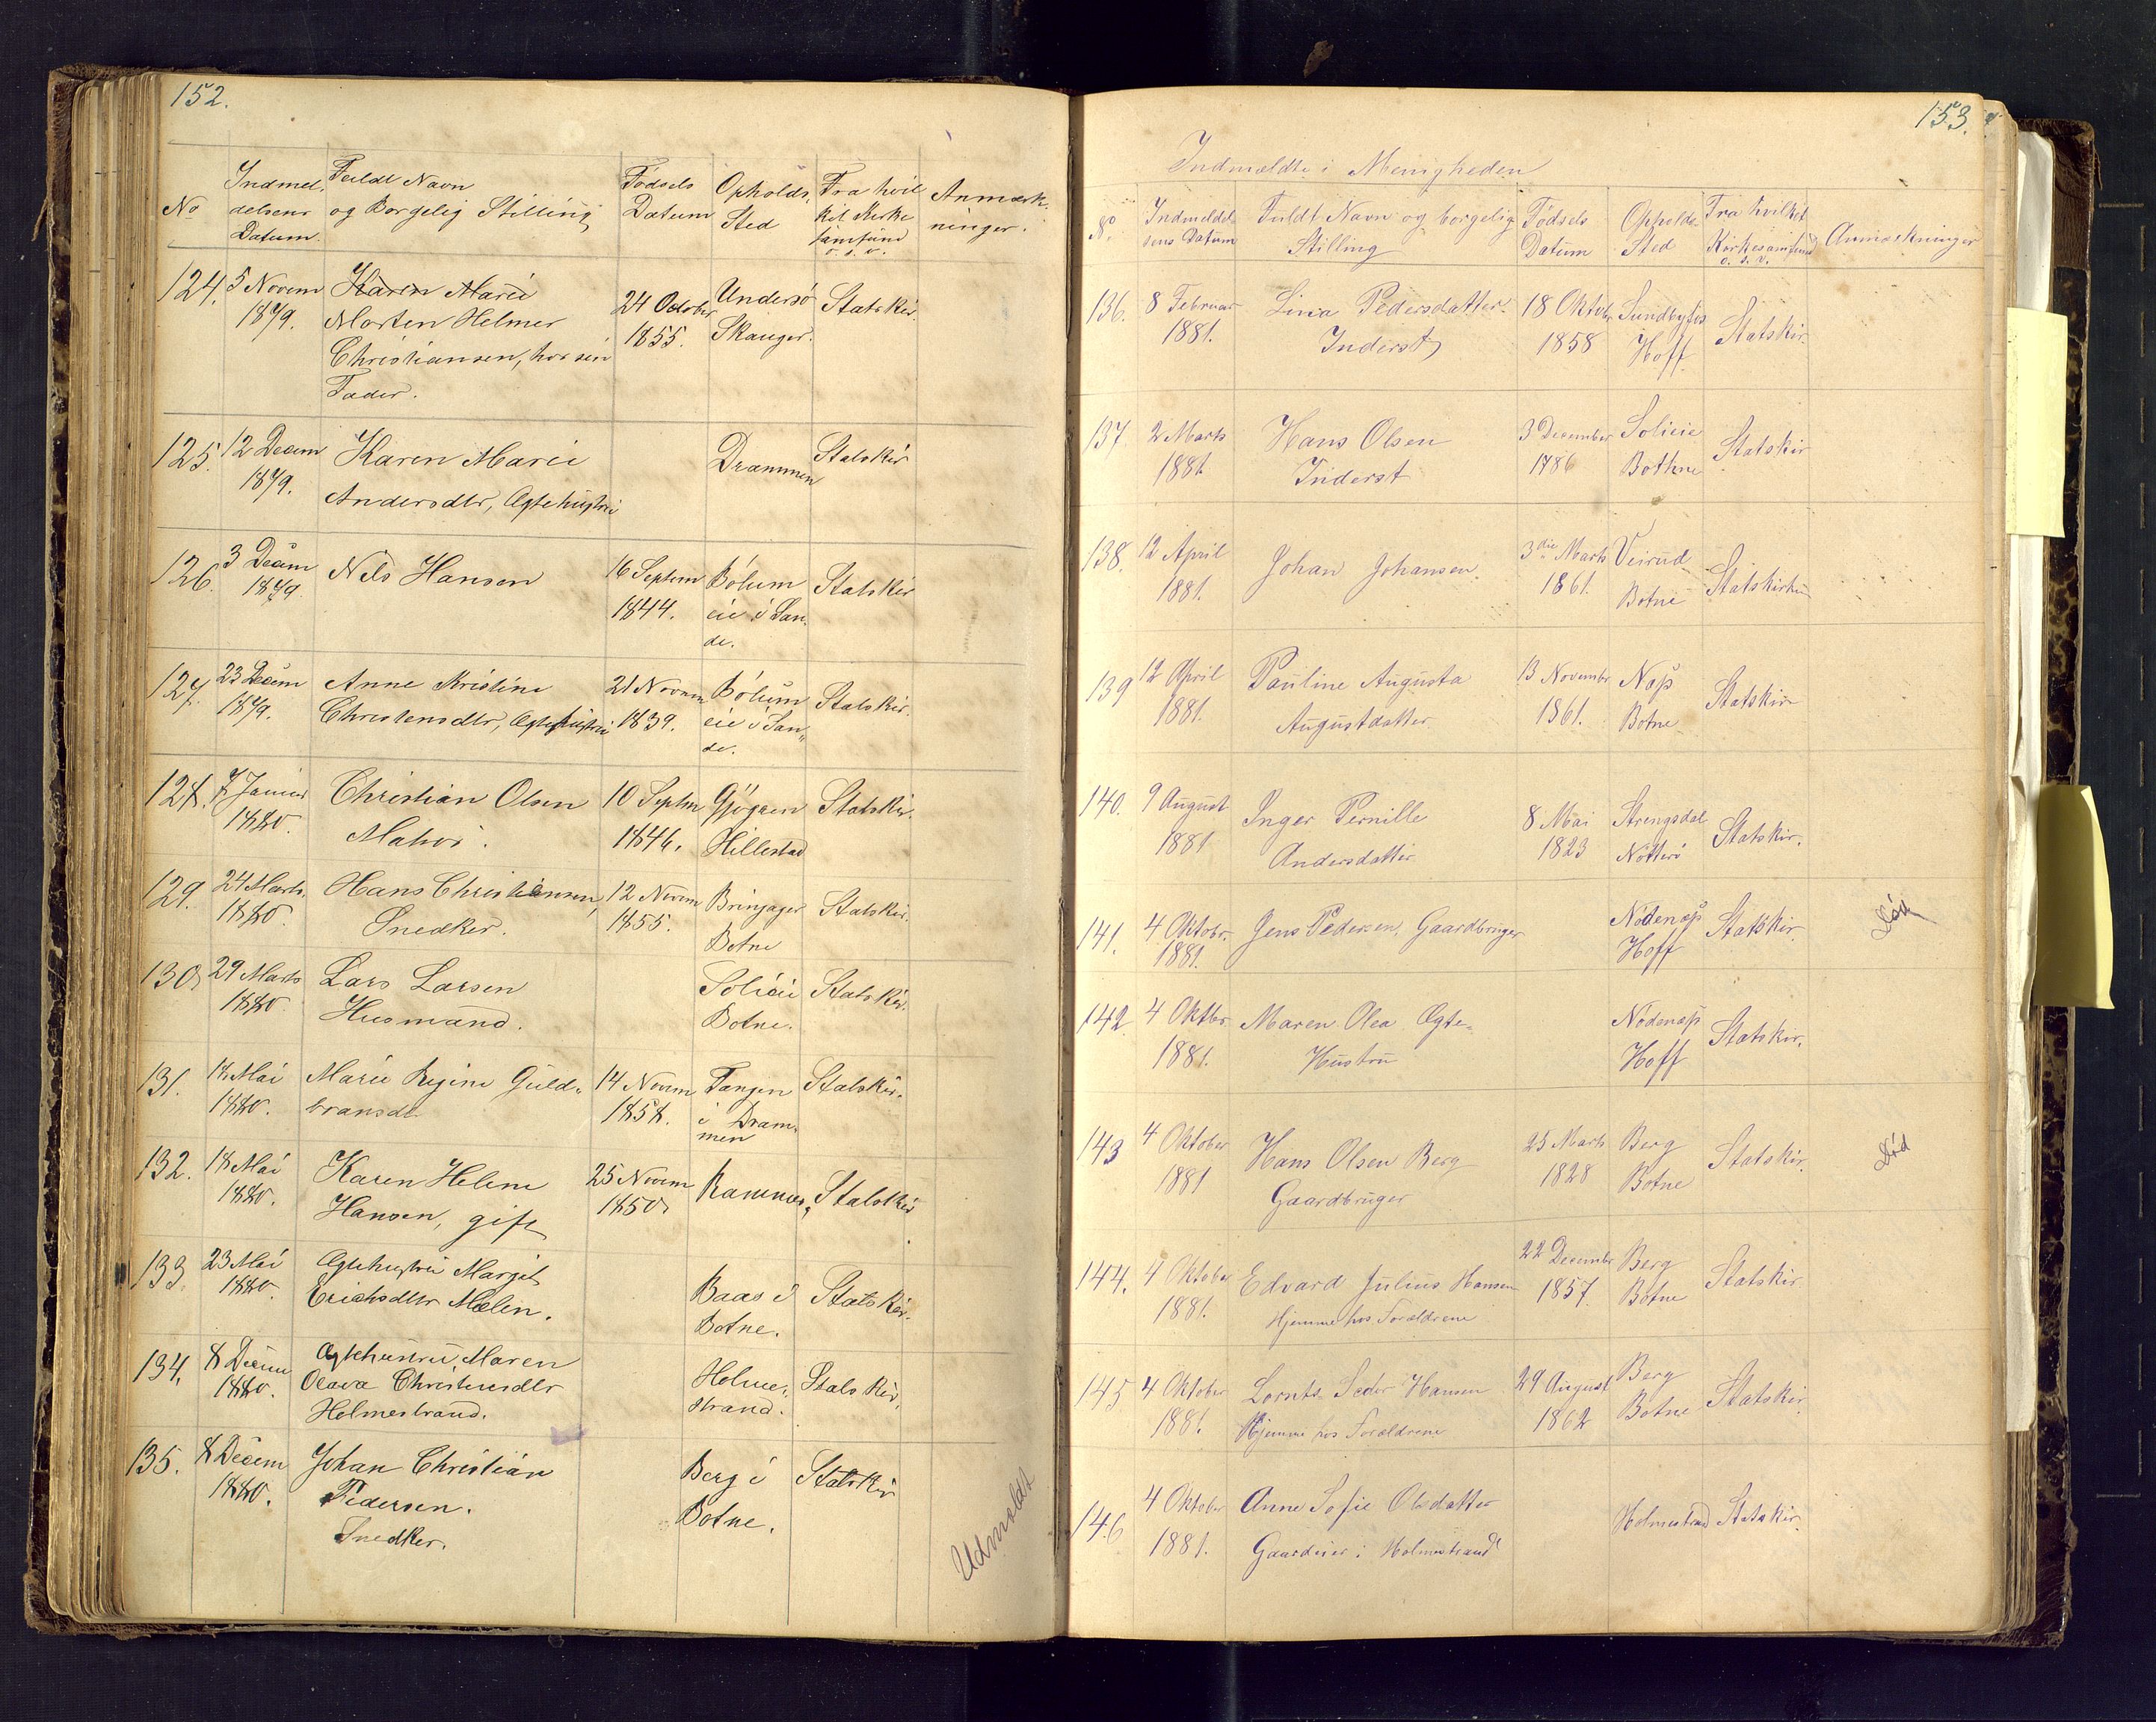 152.
No
Indmel.
delsens
Datum.
Fuldt Navn
og Borgelig Stilling
Fødsels
Datum
Opholds.
Sted
Fra hvil
ket Kirke
samfund
o. s. v.
Anmærk.
ninger.
124. 5 Novem 1879.
Karen Marie
Morten Helmer
Christiansen, hos sin
Fader.
24 October
1855.
Undersø
Skauger.
Statskir.
125. 12 Decem
1879.
Karen Marie
Andersdtr, Ægtehustru
Drammen
Statskir
126. 3 Decem
1879.
Nils Hansen
16 Septem
1844.
Bólum
eie i San.
de.
Statskir
127. 23 Decem
1879.
Anne Kristine
Christensdtr, Ægtehustru
21 Novem
1839.
Bólum
eie i San„
de.
Statskir.
128. 7 Januar
1880.
Christian Olsen
10 Septm
1846.
Hillestad
Statskir.
129. 24 Marts.
1880.
Hans Christiansen,
Snedker.
12 Novem
1855.
Bringager
Botne
Statskir.
130, 29 Marts
1880.
Lars Larsen
Husmand.
Solieie
Botne.
Statskir.
131. 18 Mai
1880.
Marie Regine Guld„
bransdr
14 Novem
1858.
Tangen
i Dram.
men
Statskir.
132. 18 Mai
1880.
Karen Helene
Hansen, gift
25 Novem
1850,
Ramnes,
Statskir
133 23 Mai
1880.
Ægtehustru Margit
Erichsdtr Mælen.
Baas i
Botne.
Statskir.
134. 8 Decem
1880.
Ægtehustru Maren
Olava Christensdtr
Holmestrand.
Holme„
strand.
Statskir.
135. 8 Decem
1880.
Johan Christian
Pedersen.
Snedker.
Berg i
Botne.
Statskir
Udmeldt
153.
Indmeldte i Menigheden
No
Indmeldel
sens Datum
Fuldt Navn og borgelig
Stilling
Fødsels
Datum
Opholds-
Sted
Fra hvilket
Kirkesamfund
o. s. v.
Anmærkninger
136. 8 Februar
1881.
Lina Pedersdatter.
Inderst
18 Oktober
1858
Sundbyfos
Hoff
Statskir.
137. 2 Marts
1881
Hans Olsen
Inderst
3 December
1786
Solieie
Bothne
Statskir
138. 12 April
1881.
Johan Johansen.
3die Marts
1861.
Veirud
Botne
Statskirken
139 12 April
1881.
Pauline Augusta
Augustdatter
13 Novembr
1861.
Nøs
Botne
Statskir
140. 9 August
1881
Inger Pernille
Andersdatter
8 Mai
1823
Strengsdal
Nötterö
Statskir.
141. 4 Oktobr.
1881.
Jens Pedersen, Gaardbruger
Nödenæs
Hoff
Statskir.
Död
142 4 Oktbr
1881.
Maren Olea Ægte-
Hustru
Nödenæs
Hoff
Statskir.
143 4 Oktober
1881
Hans Olsen Berg
Gaardbruger
25 Marts
1828
Berg
Botne
Statskir.
Död
144. 4 Oktober
1881.
Edvard Julius Hansen
Hjemme hos Forældrene
22 Decembr
1857.
Berg
Botne
Statskir.
145 4 Oktober
1881.
Lornts Peder Hansen
Hjemme hos Forældrene
29 August
1862
Berg
Botne
Statskir.
146 4 Oktober
1881.
Anne Sofie Olsdatter
Gaardeier i Holmestrand
Holmestrand
Statskir.